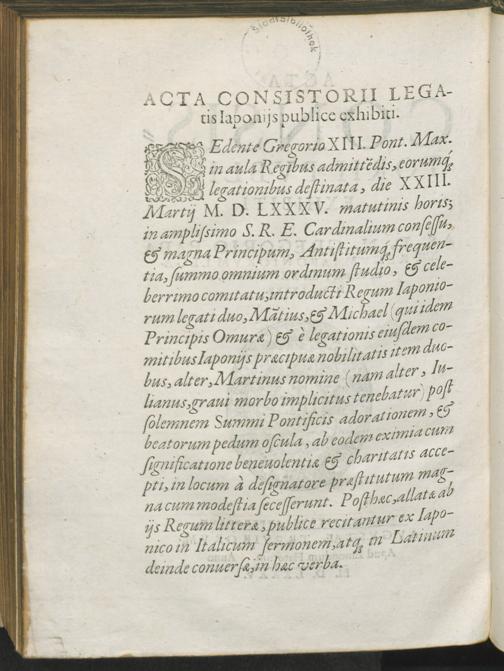 Stadtbibliothek
ACTA CONSISTORII LEGA-
tis Iaponijs publice exhibiti.
SEdente Gregorio XIII. Pont. Max.
in aula Regibus admittẽdis, eorumq;
legationibus destinata, die XXIII.
Martij M. D. LXXXV. matutinis horis;
in amplissimo S. R. E. Cardinalium consessu,
& magna Principum, Antistitumq; frequen-
tia, summo omnium ordinum studio, & cele-
berrimo comitatu, introducti Regum Iaponio-
rum legati duo, Mãtius, & Michael (qui idem
Principis Omuræ) & è legationis eiusdem co-
mitibus Iaponijs præcipuæ nobilitatis item duo-
bus, alter, Martinus nomine (nam alter, Iu-
lianus, graui morbo implicitus tenebatur) post
solemnem Summi Pontificis adorationem, &
beatorum pedum oscula, ab eodem eximia cum
significatione beneuolentiæ & charitatis acce-
pti, in locum à designatore præstitutum mag-
na cum modestia secesserunt. Posthæc, allatæ ab
ijs Regum litteræ, publice recitantur ex Iapo-
nico in Italicum sermonem, atq; in Latinum
deinde conuersæ, in hæc verba.